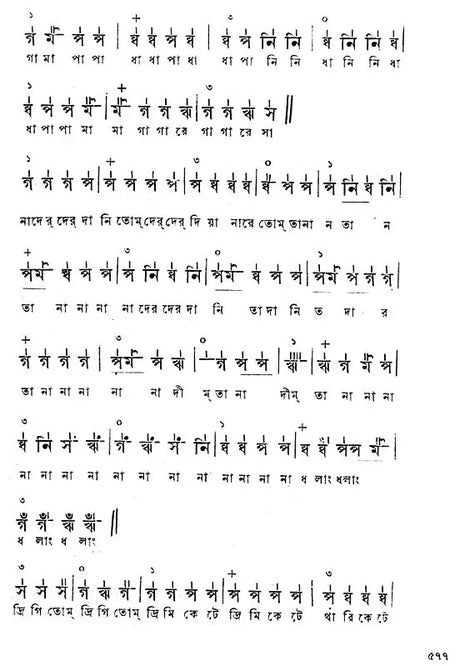 ১ + ৩ ০
গ ম প প | ধ ধ প ধ | ধ প নি নি | ধ নি নি ধ |
গা মা পা পা ধা ধা পা ধা ধা পা নি নি ধা নি নি ধা
১ + ৩
ধ প প ম | ম গ গ ঋ | গ গ ঋ স ||
ধা পা পা মা মা গা গা রে গা গা রে সা
১ + ৩ ০ ১
গ গ গ প | প প প প | প ধ ধ ধ | ধ প প | প নি ধ নি |
নাদের্ দের্ দা নি তোম্ দের্ দের্ দি য়া নারে তোম্ তা না ন তা ন
+ ৩ ০ ১
পম ধ প প | প নি ধ নি | পম ধ প প | পম প গ গ |
তা না না না নাদের দের দা নি তা দা নি ত দা র
+ ৩ ০ ১ +
গ গ গ গ | পম প ঋ | গ প প | ঋ | ঋ গ ম প |
তা না না না না না দীম্ তা না দীম্ তা না না না
৩ ০ ১ +
ধ নি স ঋ | গ ঋ স নি | ধ ধ প প | ধ ধ পপ ম |
না না না না না না না না না না না না ধ লাং ধলাং
৩
গ গ ঋ ঋ ||
ধ লাং ধ লাং
৩ ০ ১ + ৩
স স স | গ ঋ গ | গ গ প প | প প প প | প ধ ধ ধ |
দ্রি গি তোম্ দ্রি গি তোম্ দ্রি মি কে টে দ্রি মি কে টে থা রি কে টে
৫৭৭